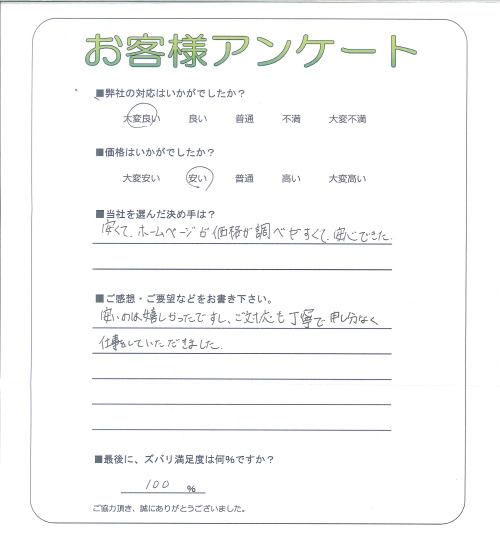 お客様アンケート
■弊社の対応はいかがでしたか?
大変良い 良い 普通 不満 大変不満
■価格はいかがでしたか?
大変安い 安い 普通 高い 大変高い
■当社を選んだ決め手は?
安くて、ホームページが価格が調べやすくて、安心できた。
■ご感想・ご要望などをお書き下さい。
安いのは嬉しかったですし、ご対応も丁寧で申し分なく
仕事をしていただきました。
■最後に、ズバリ満足度は何%ですか?
100 %
ご協力頂き、誠にありがとうございました。